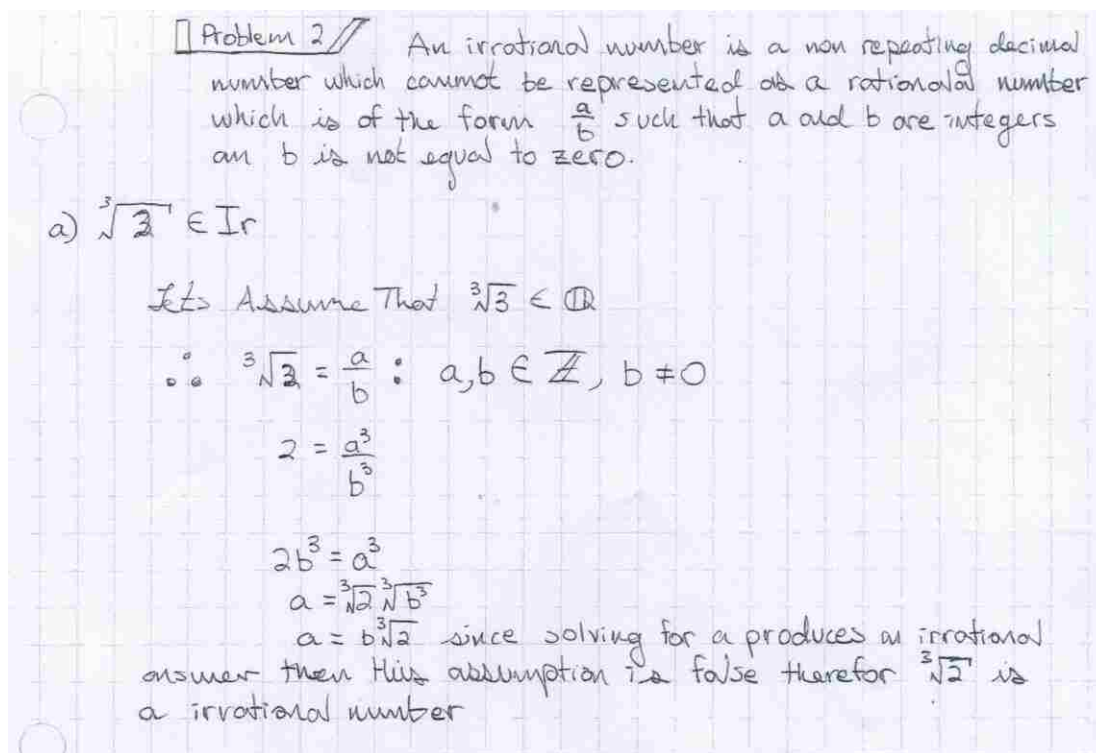 Problem 2 An irrational number is a non repeating decimal
number which cannot be represented as a rational number
which is of the form a/b such that a and b are integers
an b is not equal to zero.
a) ∛3 ∈ Ir
Lets Assume That ∛3 ∈ ℚ
∴ ∛2 = a/b : a,b ∈ ℤ, b ≠ 0
2 = a³/b³
2b³ = a³
a = ∛2 ∛b³
a = b∛2 since solving for a produces an irrational
answer then this assumption is false therefor ∛2 is
a irrational number